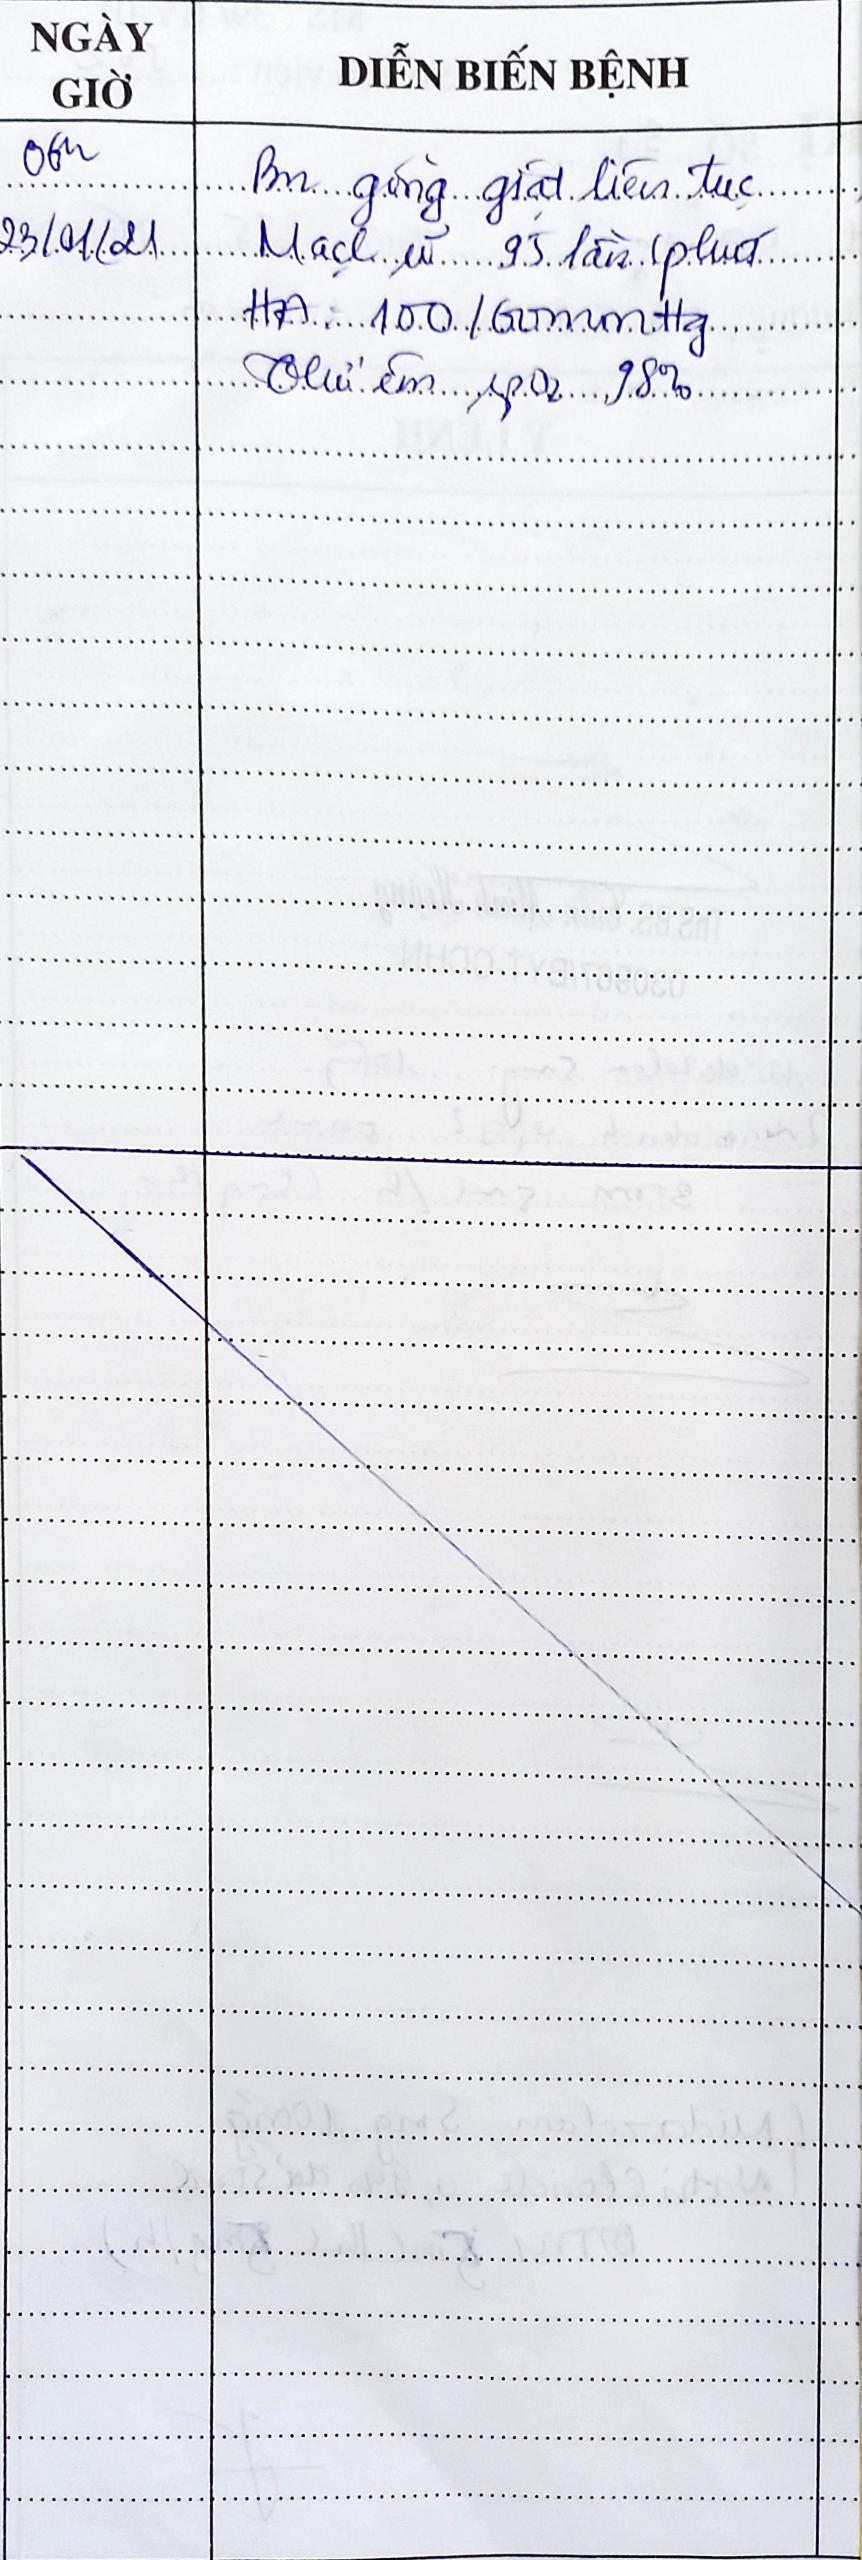 NGÀY
GIỜ
DIỄN BIẾN BỆNH
06h
Bn gồng giật liên tục
23/01/21
Mạch 95 lần/phút
HA: 100/60mmHg
Thở êm spO2 98%